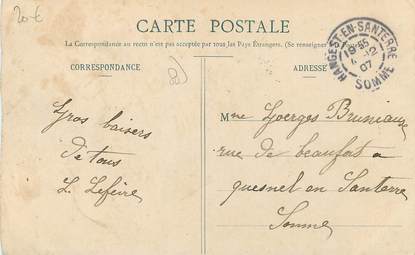 20€
CARTE POSTALE
La Correspondance au recto n'est pas acceptée par tous les Pays Étrangers. (Se renseigner
CORRESPONDANCE
ADRESSE
HANGEST-EN-SANTERRE
18 35
12
07
SOMME
Gros baisers
de tous
L. Lefèvre
Mme Goerges Bruniaux
rue de beaufort a
quesnel en Santerre
Somme